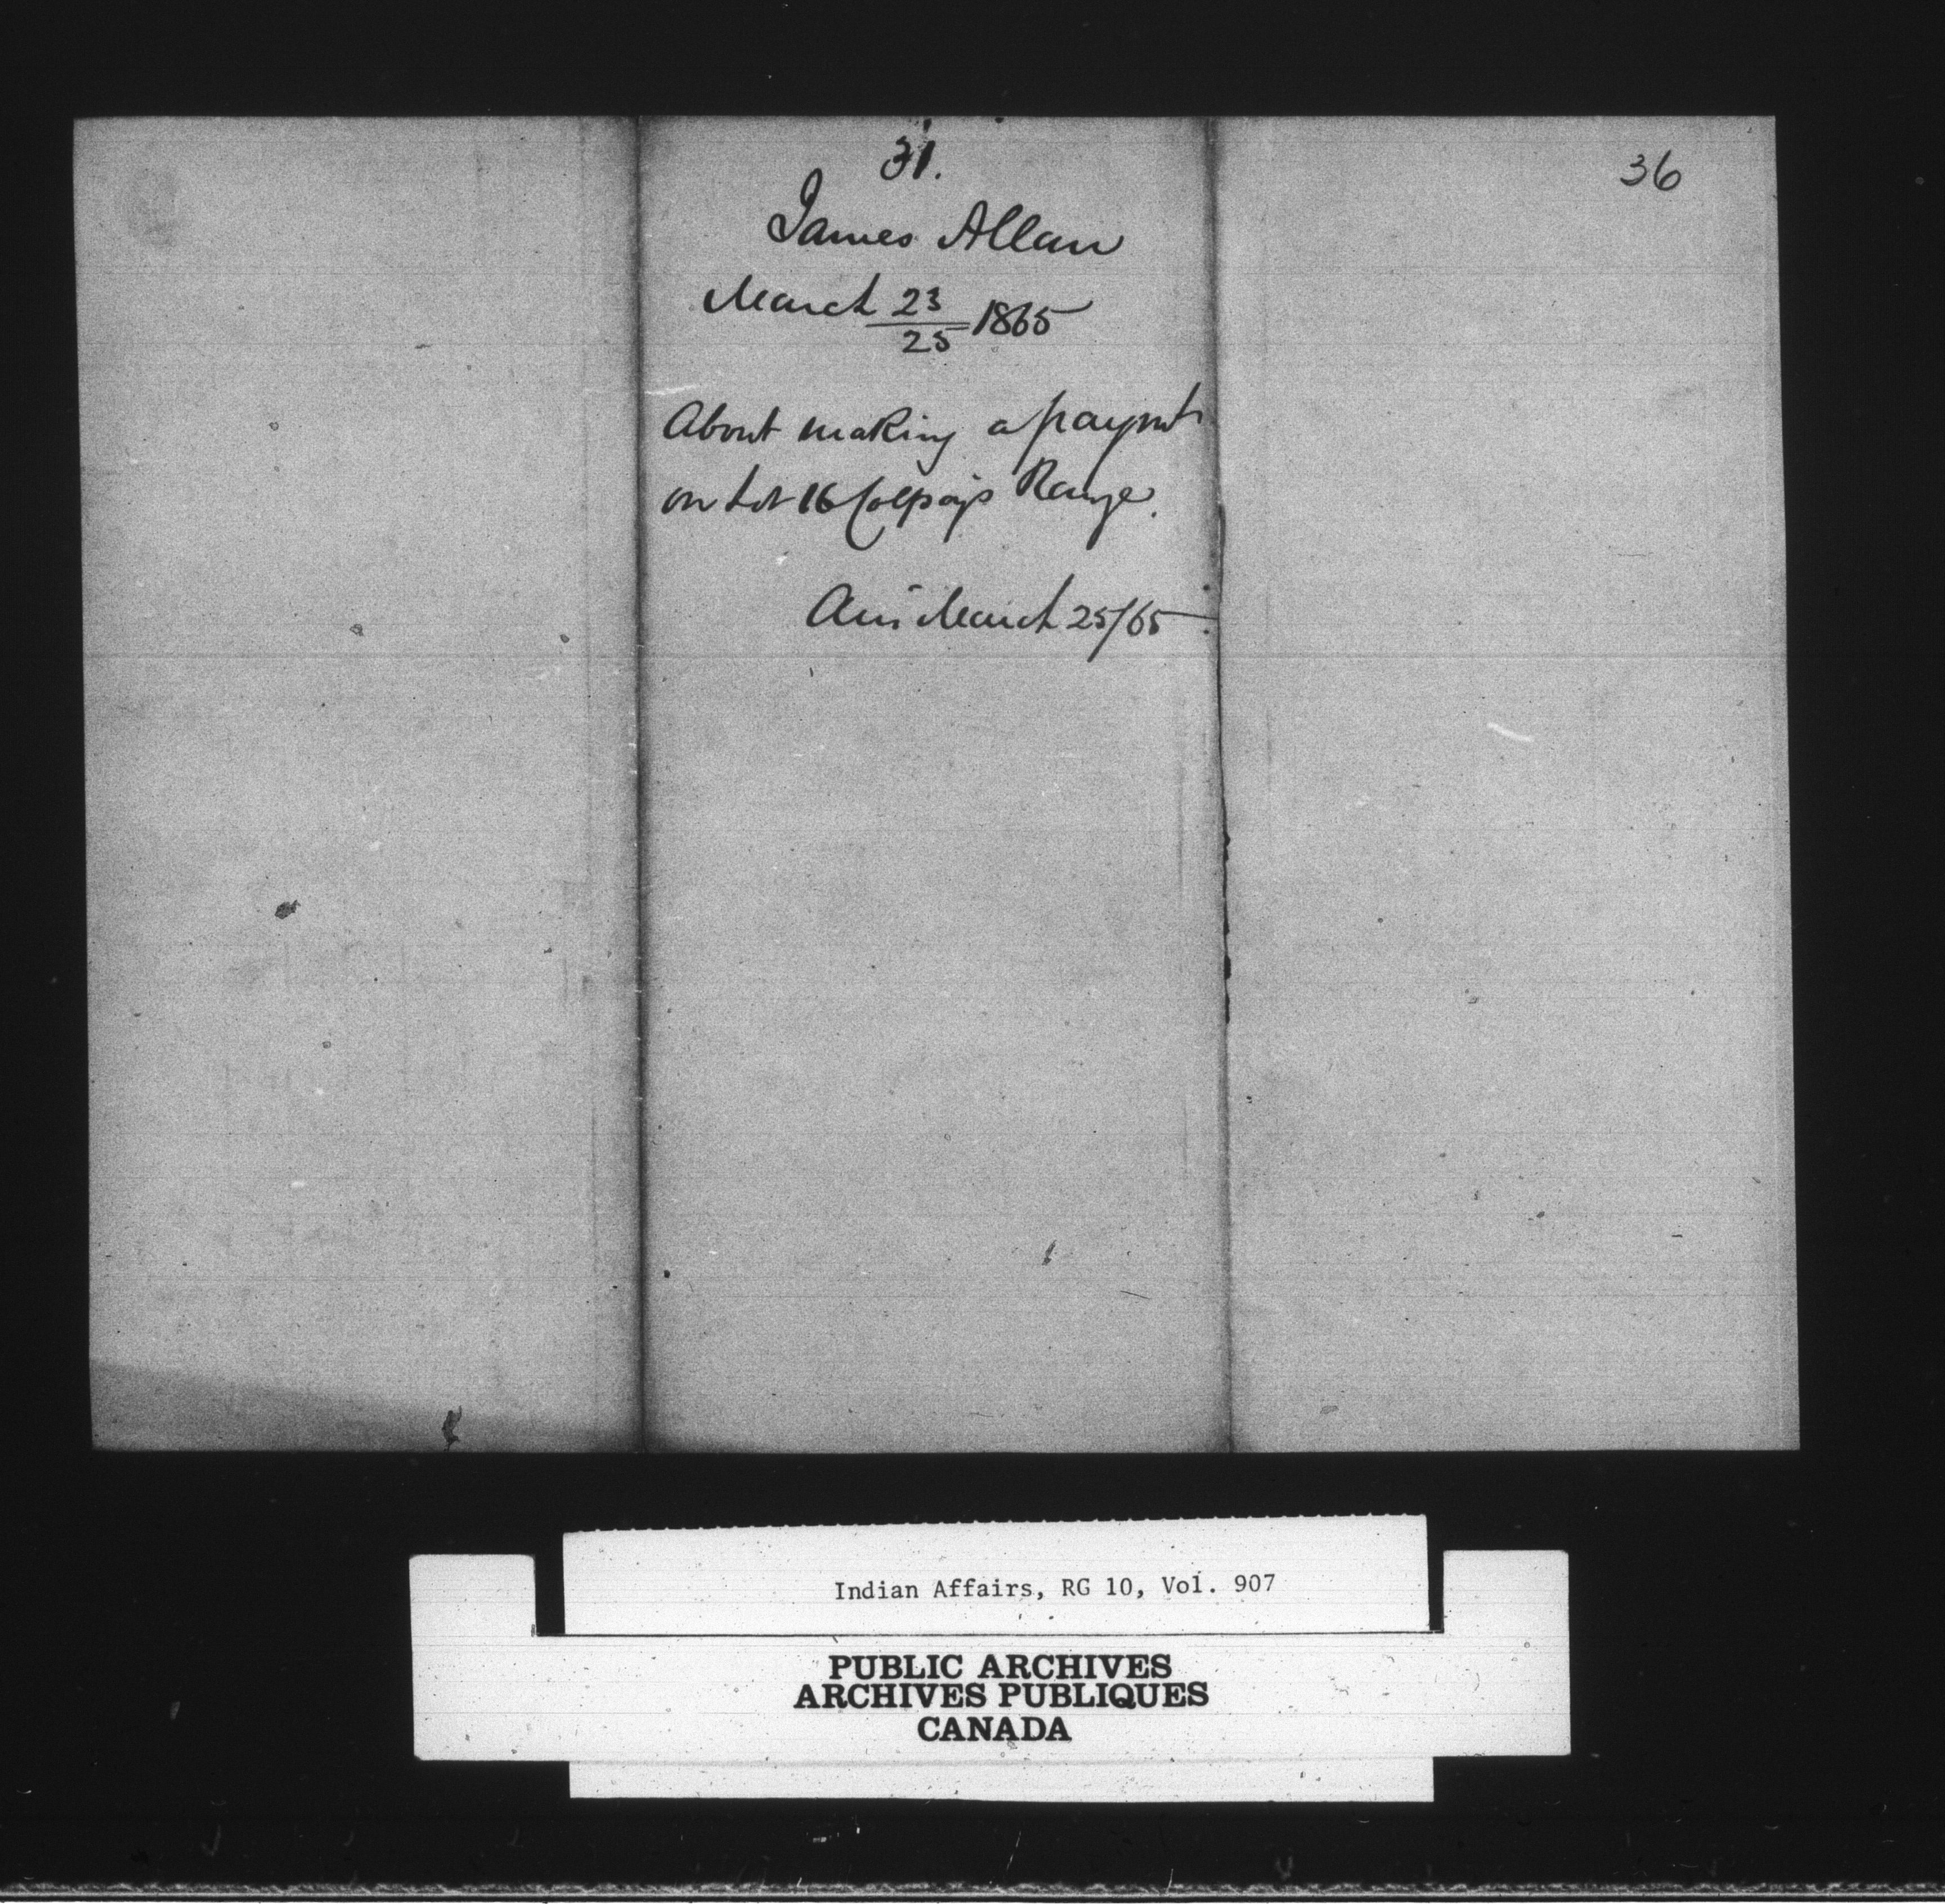 31.
36
James Allan
March 23/25 1865
About making a paymt
on Lot 16 Colpoys Range.
Ans March 25/65
Indian Affairs, RG 10, Vol. 907
PUBLIC ARCHIVES
ARCHIVES PUBLIQUES
CANADA